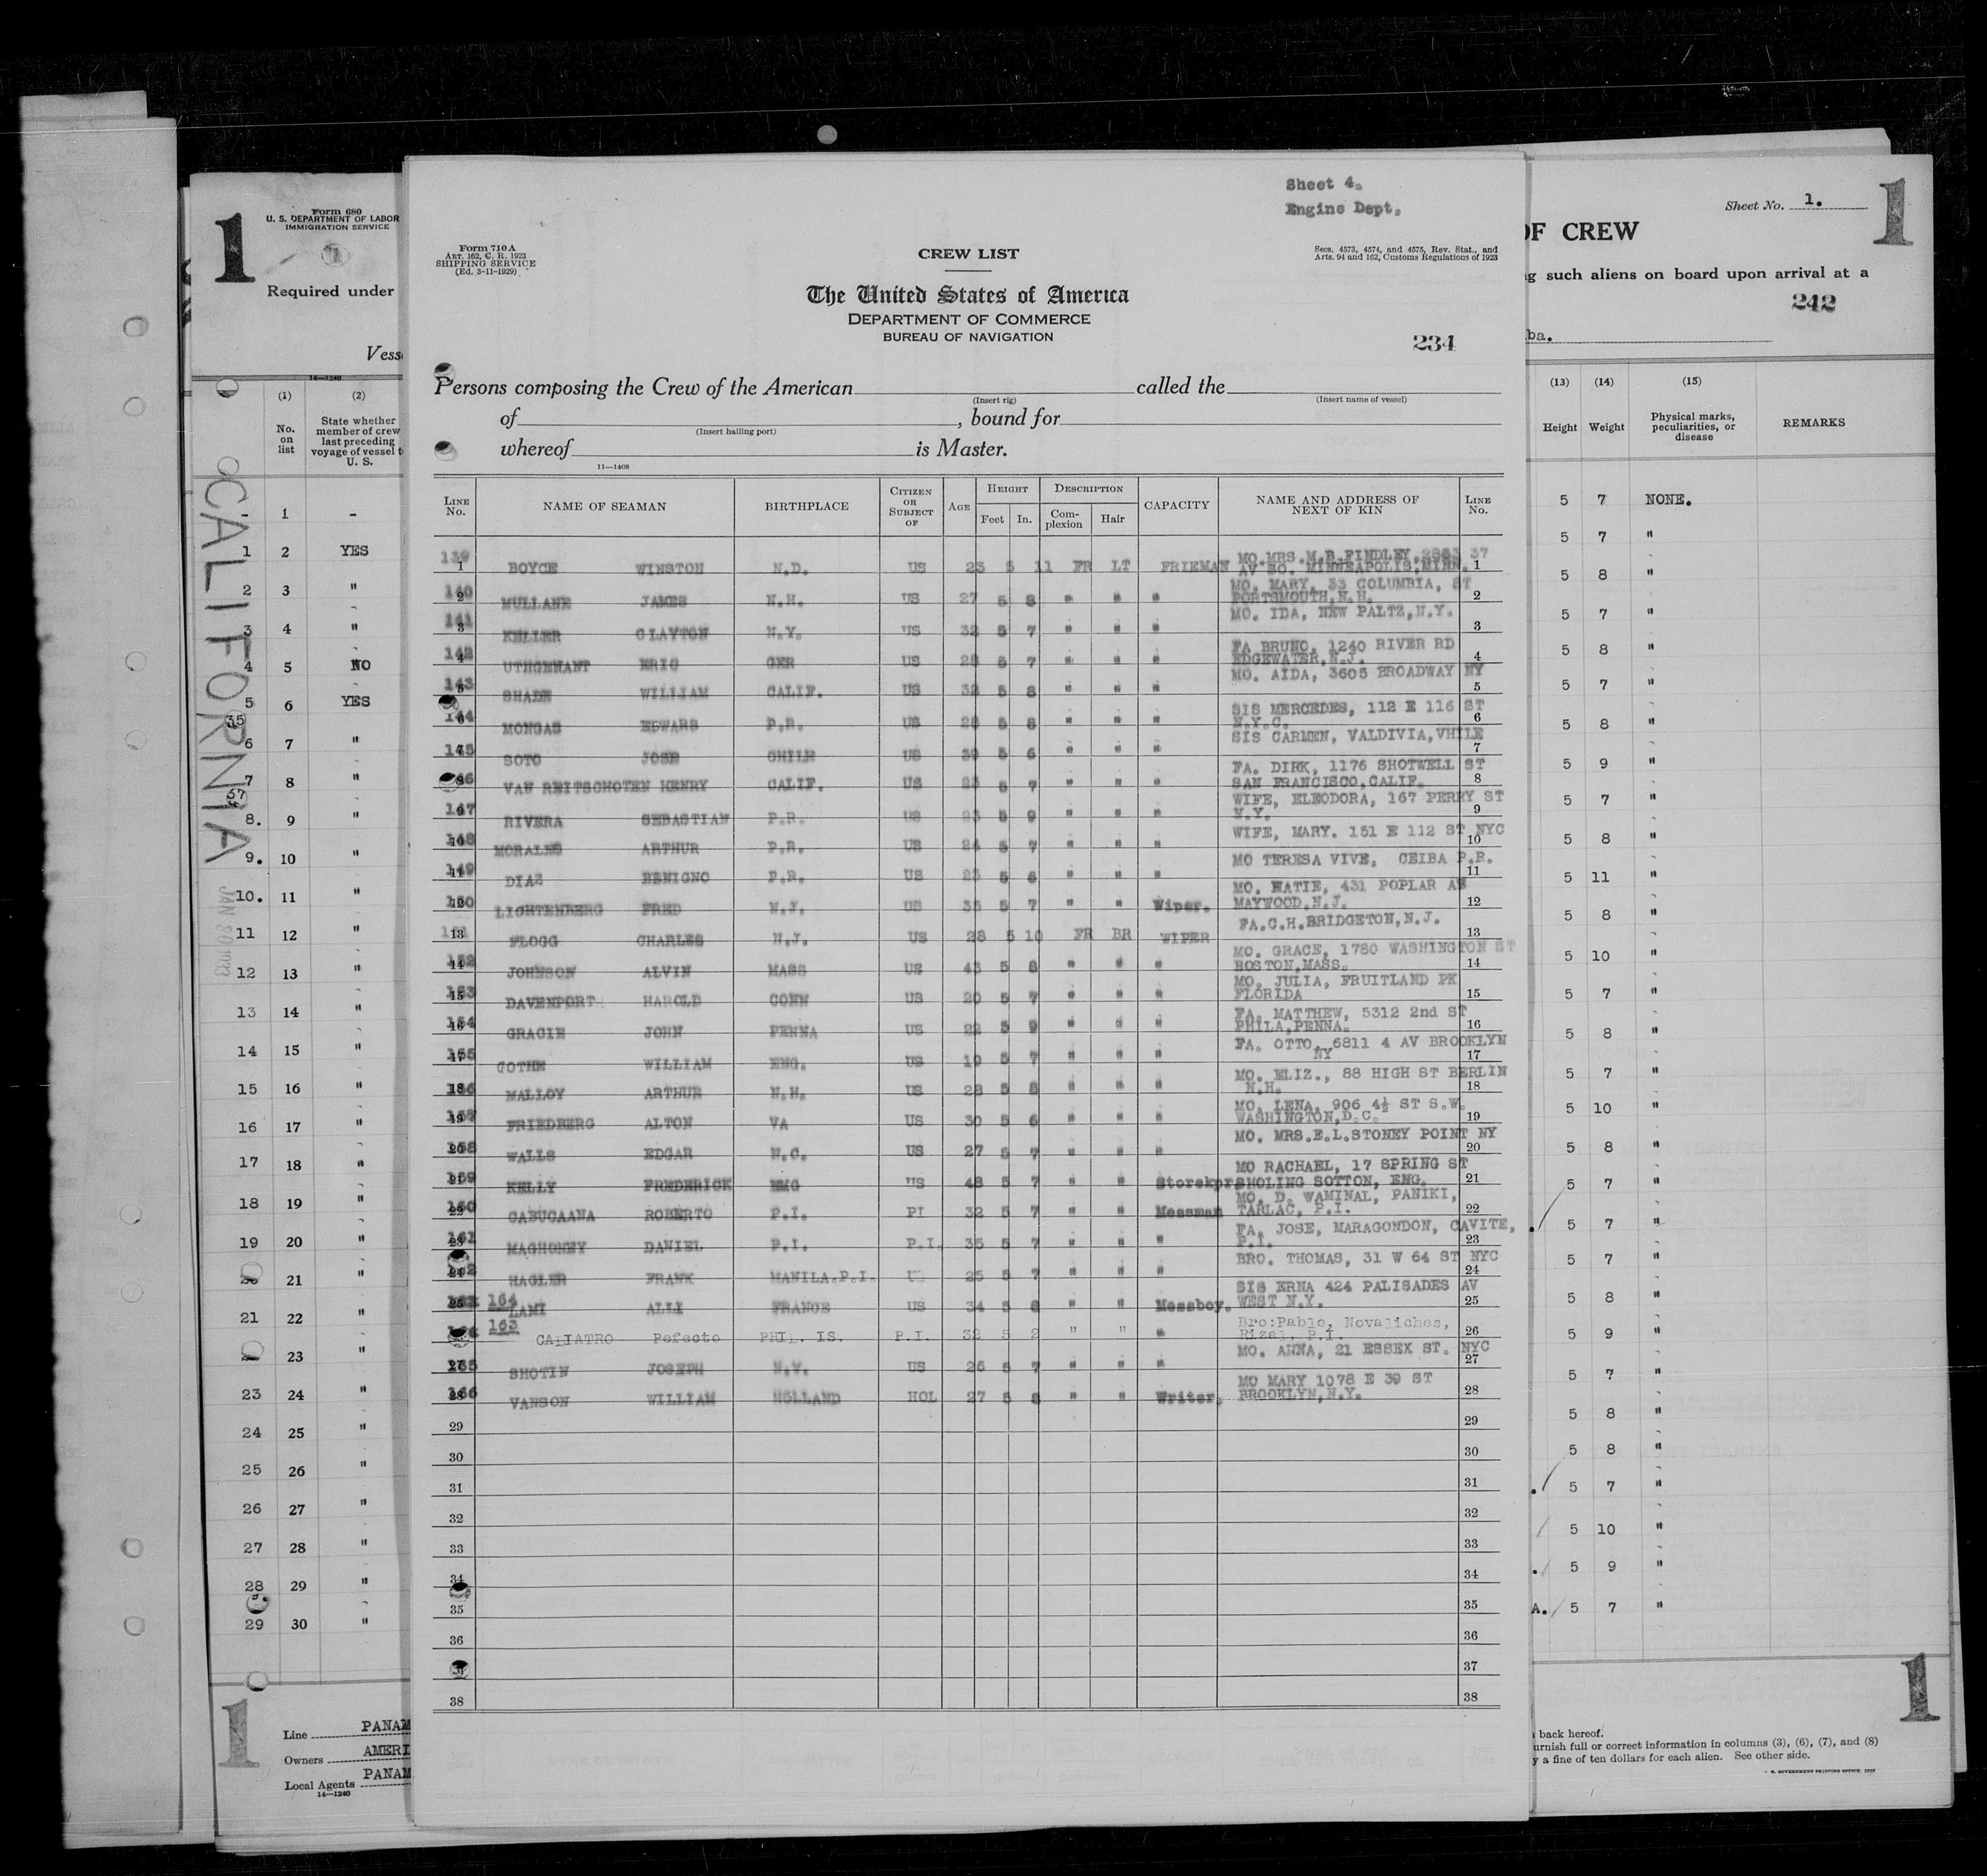 Sheet 4.
Engine Dept.
Form 710 A
ART. 162, C. R. 1923
SHIPPING SERVICE
(Ed. 3-11-1929)
CREW LIST
Secs. 4573, 4574, and 4575, Rev. Stat., and
Arts. 94 and 162, Customs Regulations of 1923
The United States of America
DEPARTMENT OF COMMERCE
BUREAU OF NAVIGATION
234
Persons composing the Crew of the American called the
(Insert rig) (Insert name of vessel)
of , bound for
(Insert hailing port)
whereof is Master.
11—1408
LINE No. NAME OF SEAMAN BIRTHPLACE CITIZEN OR SUBJECT OF AGE HEIGHT Feet In. DESCRIPTION Complexion Hair CAPACITY NAME AND ADDRESS OF NEXT OF KIN LINE No.
139 1 BOYCE WINSTON N.D. US 23 5 11 FR LT FRIEMAN MO MRS M.B.FINDLEY 2883 37 AV SO. MINNEAPOLIS,MINN. 1
140 2 MULLANE JAMES N.H. US 27 5 8 " " " MO. MARY, 33 COLUMBIA, ST PORTSMOUTH,N.H. 2
141 3 KELLER CLAYTON N.Y. US 32 5 7 " " " MO. IDA, NEW PALTZ,N.Y. 3
142 4 UTHGENANT ERIC GER US 28 5 7 " " " FA BRUNO, 1240 RIVER RD EDGEWATER,N.J. 4
143 5 SHADE WILLIAM CALIF. US 32 5 8 " " " MO. AIDA, 3605 BROADWAY NY 5
144 6 MONGAS EDWARS P.R. US 28 5 8 " " " SIS MERCEDES, 112 E 116 ST N.Y.C. 6
145 SOTO JOSE CHILE US 39 5 6 " " " SIS CARMEN, VALDIVIA,VHILE 7
146 8 VAN REITSCHOTEN HENRY CALIF. US 23 5 7 " " " FA. DIRK, 1176 SHOTWELL ST SAN FRANCISCO,CALIF. 8
147 9 RIVERA SEBASTIAN P.R. US 23 5 9 " " " WIFE, ELEODORA, 167 PERRY ST N.Y. 9
148 10 MORALES ARTHUR P.R. US 24 5 7 " " " WIFE, MARY. 151 E 112 ST NYC 10
149 11 DIAZ BENIGNO P.R. US 23 5 6 " " " MO TERESA VIVE, CEIBA P.R. 11
150 12 LICHTENBERG FRED N.J. US 35 5 7 " " Wiper. MO. KATIE, 431 POPLAR AV MAYWOOD,N.J. 12
151 13 FLOGG CHARLES N.J. US 28 5 10 FR BR WIPER FA.C.H.BRIDGETON,N.J. 13
152 14 JOHNSON ALVIN MASS US 43 5 8 " " " MO. GRACE, 1780 WASHINGTON ST BOSTON,MASS. 14
153 15 DAVENPORT HAROLD CONN US 20 5 7 " " " MO. JULIA, FRUITLAND PK FLORIDA 15
154 16 GRACIE JOHN PENNA US 22 5 9 " " " FA. MATTHEW, 5312 2nd ST PHILA,PENNA. 16
155 17 GOTHE WILLIAM ENG. US 19 5 7 " " " FA. OTTO, 6811 4 AV BROOKLYN NY 17
156 18 MALLOY ARTHUR N.H. US 28 5 8 " " " MO. ELIZ., 88 HIGH ST BERLIN N.H. 18
157 19 FRIEDBERG ALTON VA US 30 5 6 " " " MO. LENA, 906 4½ ST S.W. WASHINGTON,D.C. 19
158 20 WALLS EDGAR N.C. US 27 5 7 " " " MO. MRS.E.L.STONEY POINT NY 20
159 21 KELLY FREDERICK EMG US 48 5 7 " " Storekpr MO RACHAEL, 17 SPRING ST SHOLING SOTTON, ENG. 21
160 22 CABUCAANA ROBERTO P.I. PI 32 5 7 " " Messman MO. D. WAMINAL, PANIKI, TARLAC, P.I. 22
161 23 MAGHONEY DANIEL P.I. P.I. 35 5 7 " " " FA. JOSE, MARAGONDON, CAVITE, P.I. 23
162 24 HAGLER FRANK MANILA.P.I. US 25 5 7 " " " BRO. THOMAS, 31 W 64 ST NYC 24
25 164 LAMI ALLI FRANCE US 34 5 8 " " Messboy. SIS ERNA 424 PALISADES AV WEST N.Y. 25
163 CALIATRO Pefecto PHIL. IS. P.I. 32 5 2 " " " Bro:Pablo, Novaliches, Rizal, P.I. 26
165 27 SHOTIN JOSEPH N.Y. US 26 5 7 " " " MO. ANNA, 21 ESSEX ST. NYC 27
166 28 VANSON WILLIAM HOLLAND HOL 27 5 8 " " Writer. MO MARY 1078 E 39 ST BROOKLYN,N.Y. 28
29 29
30 30
31 31
32 32
33 33
34 34
35 35
36 36
37 37
38 38
1
Form 680
U. S. DEPARTMENT OF LABOR
IMMIGRATION SERVICE
Required under
14—1240
(1) (2)
No. on list
State whether member of crew last preceding voyage of vessel
U. S.
CALIFORNIA
1 -
1 2 YES
2 3 "
3 4 "
4 5 NO
5 6 YES
35
6 7 "
7 8 "
57
8. 9 "
9. 10 "
10. 11 "
11 12 "
12 13 "
13 14 "
14 15 "
15 16 "
16 17 "
17 18 "
18 19 "
19 20 "
20 21 "
21 22 "
23 "
23 24 "
24 25 "
25 26 "
26 27 "
27 28 "
28 29 "
29 30 "
1
Line PANAM
Owners AMERI
Local Agents PANAM
14—1240
Sheet No. 1.
1
OF CREW
such aliens on board upon arrival at a
242
ba.
(13) (14) (15)
Height Weight Physical marks, peculiarities, or disease REMARKS
5 7 NONE.
5 7 "
5 8 "
5 7 "
5 8 "
5 7 "
5 8 "
5 9 "
5 7 "
5 8 "
5 11 "
5 8 "
5 10 "
5 7 "
5 8 "
5 7 "
5 10 "
5 8 "
5 7 "
5 7 "
5 7 "
5 8 "
5 9 "
5 7 "
5 8 "
5 8 "
5 7 "
5 10 "
5 9 "
A. 5 7 "
1
back hereof.
urnish full or correct information in columns (3), (6), (7), and (8)
y a fine of ten dollars for each alien. See other side.